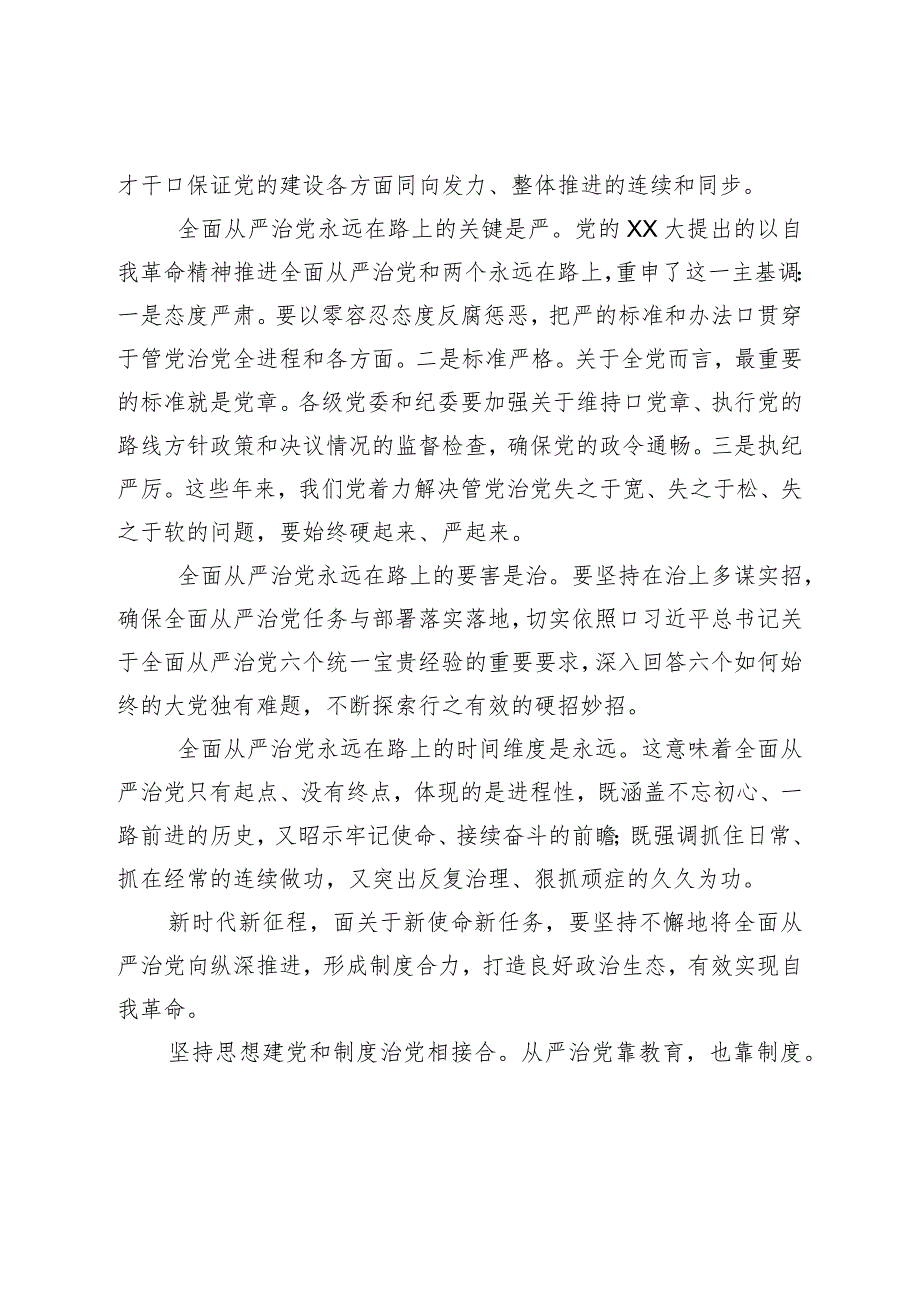 才干口保证党的建设各方面同向发力、整体推进的连续和同步。
全面从严治党永远在路上的关键是严。党的 XX 大提出的以自
我革命精神推进全面从严治党和两个永远在路上，重申了这一主基调:
一是态度严肃。要以零容忍态度反腐惩恶，把严的标准和办法口贯穿
于管党治党全进程和各方面。二是标准严格。关于全党而言，最重要
的标准就是党章。各级党委和纪委要加强关于维持口党章、执行党的
路线方针政策和决议情况的监督检查，确保党的政令通畅。三是执纪
严厉。这些年来，我们党着力解决管党治党失之于宽、失之于松、失
之于软的问题，要始终硬起来、严起来。
全面从严治党永远在路上的要害是治。要坚持在治上多谋实招，
确保全面从严治党任务与部署落实落地，切实依照口习近平总书记关
于全面从严治党六个统一宝贵经验的重要要求，深入回答六个如何始
终的大党独有难题，不断探索行之有效的硬招妙招。
全面从严治党永远在路上的时间维度是永远。这意味着全面从
严治党只有起点、没有终点，体现的是进程性，既涵盖不忘初心、一
路前进的历史，又昭示牢记使命、接续奋斗的前瞻；既强调抓住日常、
抓在经常的连续做功，又突出反复治理、狠抓顽症的久久为功。
新时代新征程，面关于新使命新任务，要坚持不懈地将全面从
严治党向纵深推进，形成制度合力，打造良好政治生态，有效实现自
我革命。
坚持思想建党和制度治党相接合。从严治党靠教育，也靠制度。